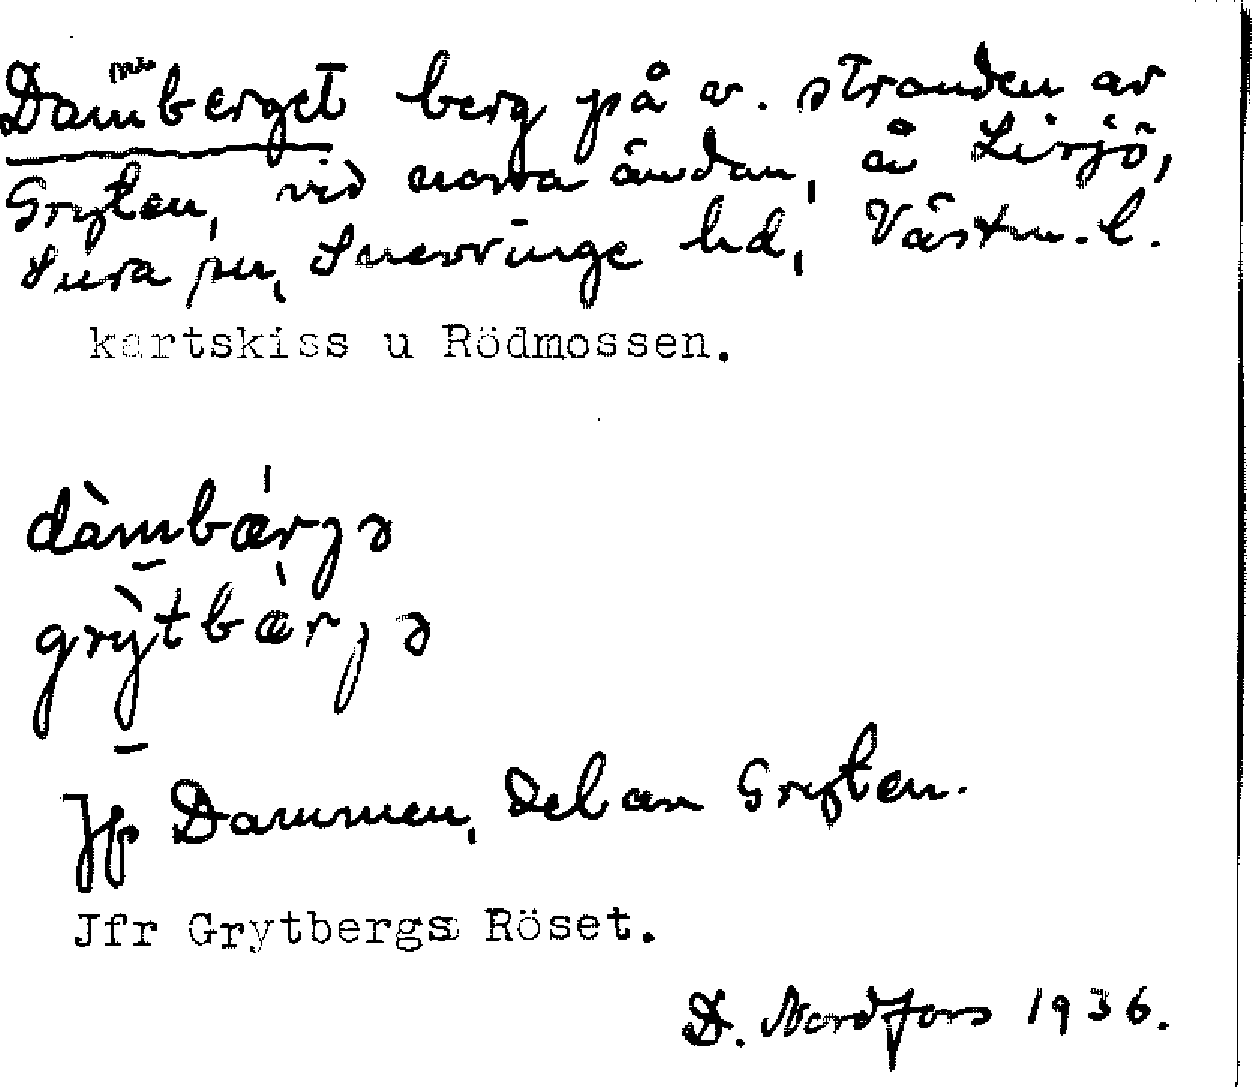 Dammberget berg på v. stranden av
Gryten, vid norra ändan, å Lisjö,
Sura sn, Snevringe hd, Västm. l.
kartskiss u Rödmossen.
dàmbǽrjə
grỳtbǽrjə
Jfr Dammen, del av Gryten.
Jfr Grytbergs Röset.
D. Nordfors 1936.